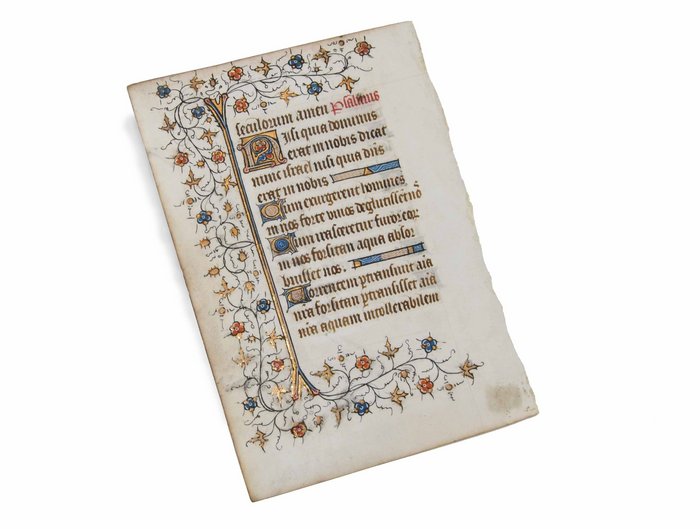 seculorum amen psalmus
Nisi quia dominus
erat in nobis dicat
nunc israel nisi quia dñs
erat in nobis
Cum exurgerent homines
in nos forte vivos deglutissent nõ
Cum irasceretur furor eor
in nos forsitan aqua absor
buisset nos.
Torrentem ptransivit aĩa
nra forsitan ptransisset aĩa
nra aquam intollerabilem